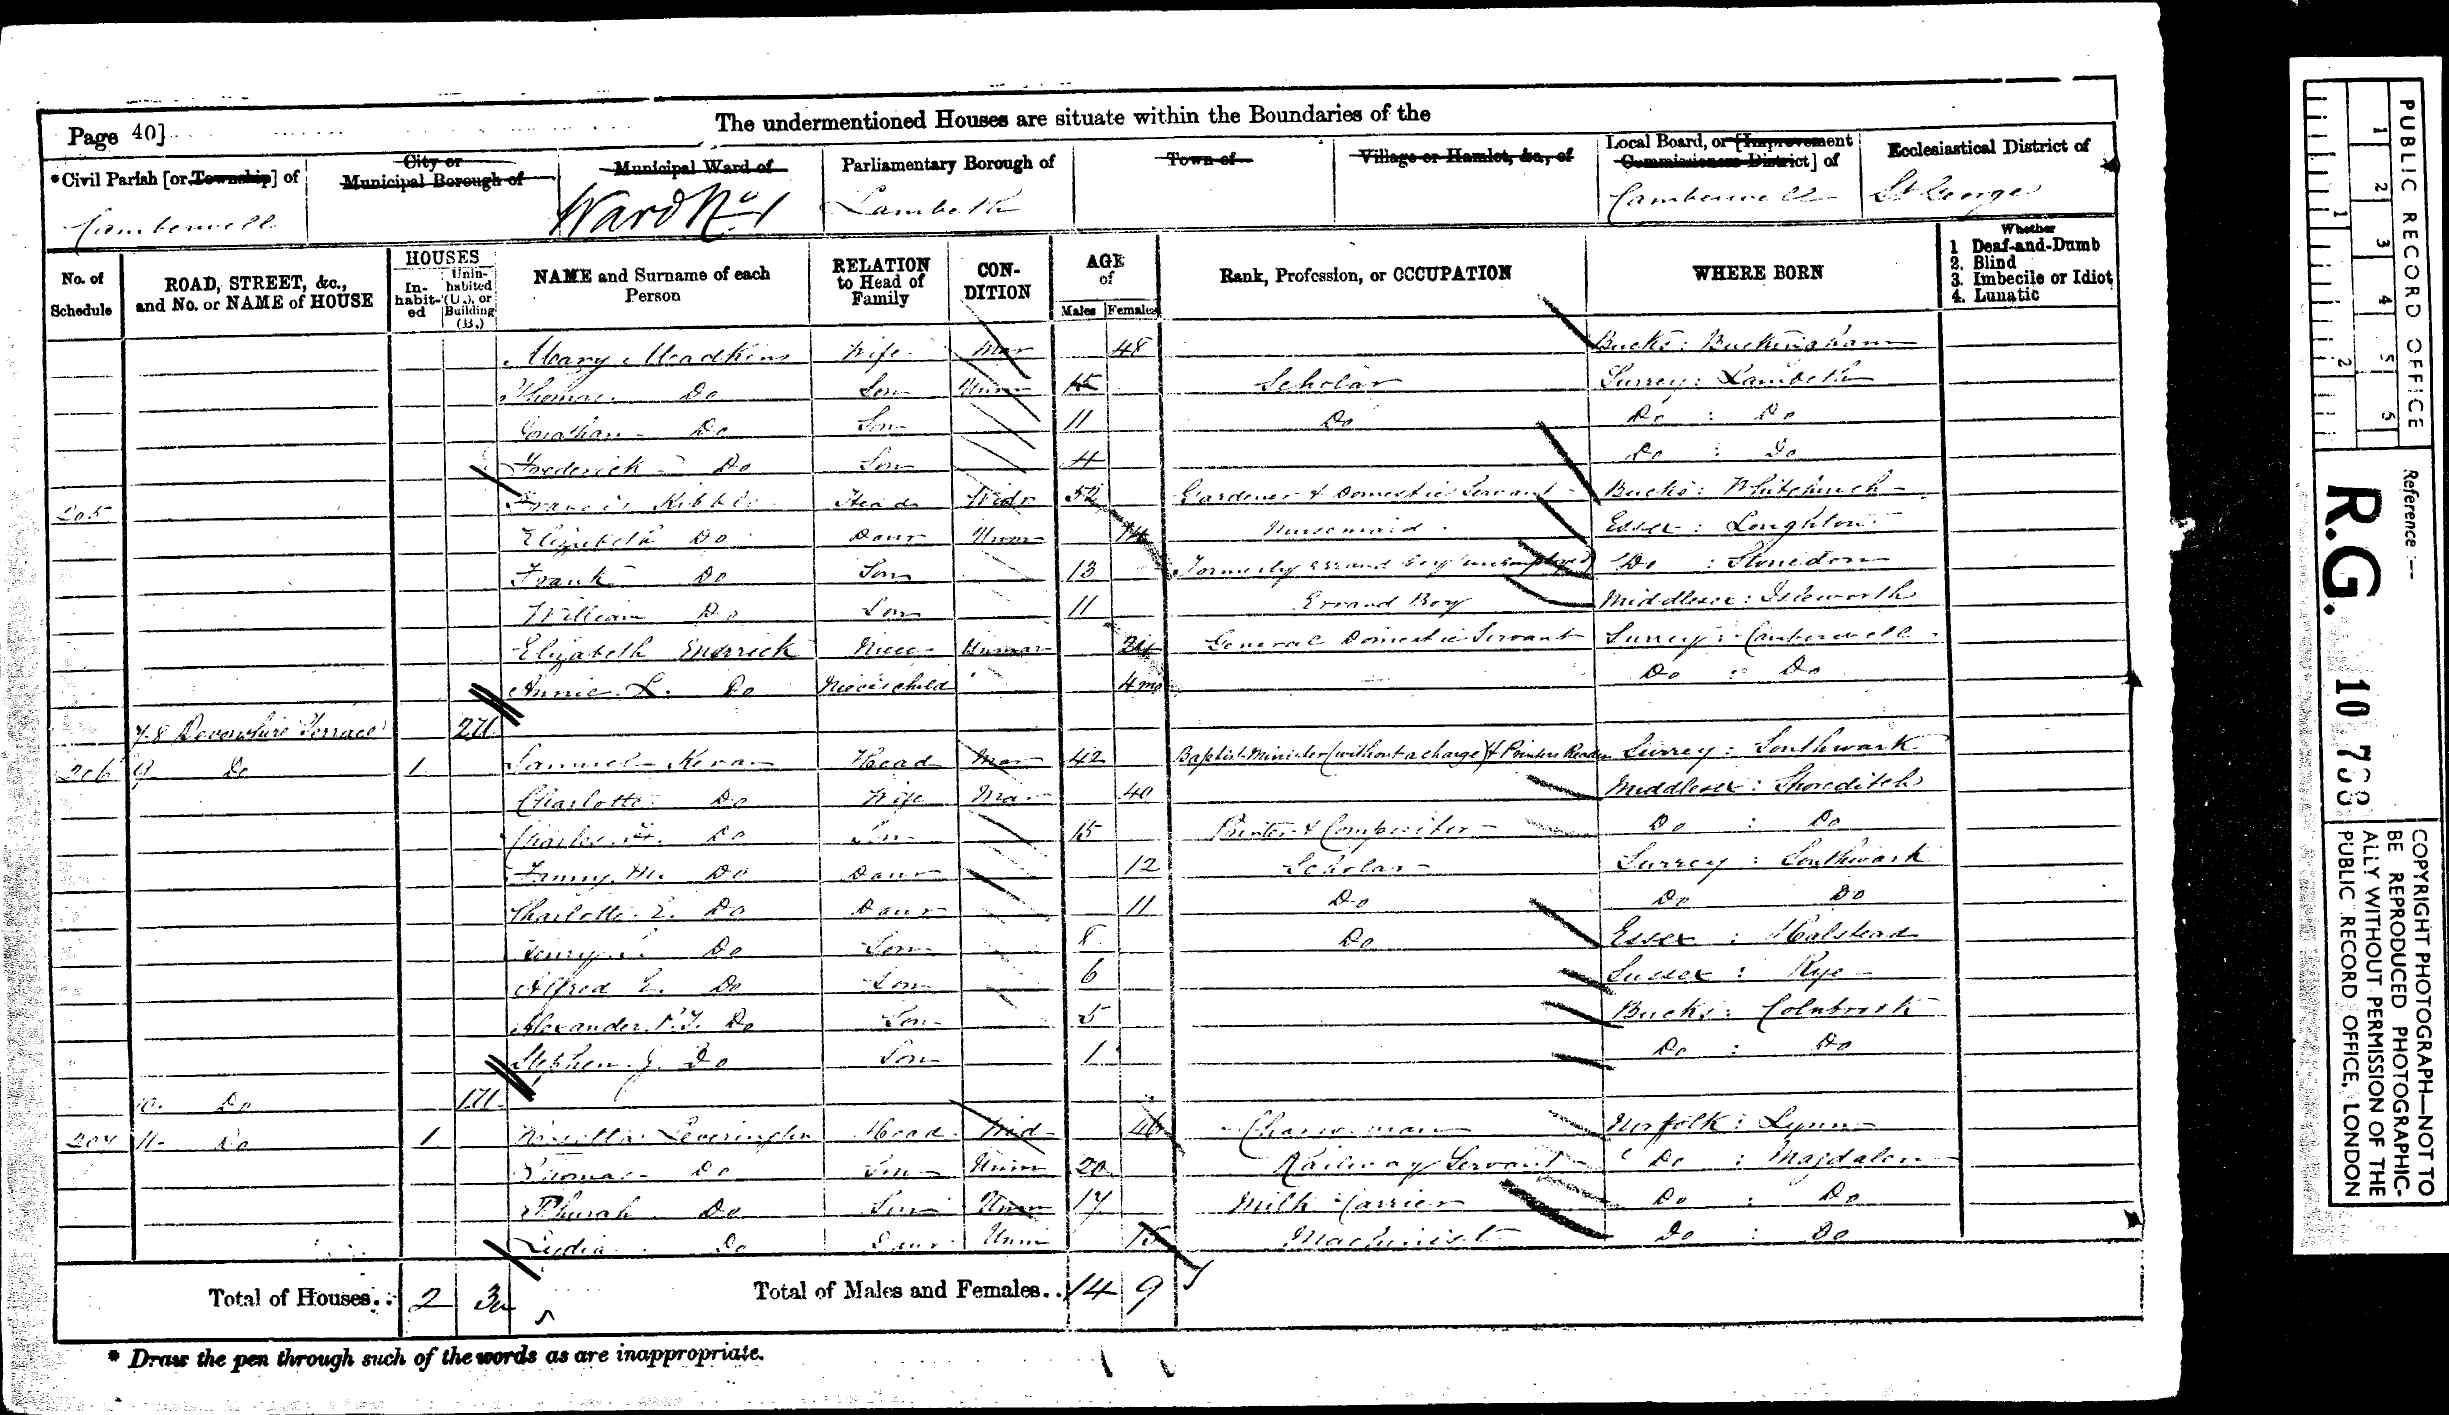 Page 40]
The undermentioned Houses are situate within the Boundaries of the
*Civil Parish [or Township] of
City or Municipal Borough of
Municipal Ward of
Parliamentary Borough of
Town of
Village or Hamlet, &c., of
Local Board, or [Improvement Commissioners District] of
Ecclesiastical District of
Camberwell Ward No 1 Lambeth Camberwell St George
No. of Schedule
ROAD, STREET, &c., and No. or NAME of HOUSE
HOUSES
Inhabited
Uninhabited (U.), or Building (B.)
NAME and Surname of each Person
RELATION to Head of Family
CONDITION
AGE of
Males Females
Rank, Profession, or OCCUPATION
WHERE BORN
Whether
1 Deaf-and-Dumb
2. Blind
3. Imbecile or Idiot
4. Lunatic
Mary Meadkins Wife Mar 48 Bucks: Buckingham
Thomas Do Son Unm 15 Scholar Surrey: Lambeth
Jonathan Do Son 11 Do Do : Do
Frederick Do Son 4 Do : Do
205 Francis Kibble Head Widr 52 Gardener & Domestic Servant Bucks: Whitchurch
Elizabeth Do Daur Unm 14 Nursemaid Essex: Loughton
Frank Do Son 13 Formerly errand boy unemployed Do : Stondon
William Do Son 11 Errand Boy Middlesex: Isleworth
Elizabeth Niece Unmar 24 General Domestic Servant Surrey: Camberwell
Annie L. Do Niece's child 4 mo Do : Do
7.8 Devonshire Terrace 2U
206 9 Do 1 Samuel Head Mar 42 Baptist Minister (without a charge) & Printers Reader Surrey: Southwark
Charlotte Do Wife Mar 40 Middlesex: Shoreditch
Charles Do Son 15 Printer & Compositor Do : Do
Fanny M. Do Daur 12 Scholar Surrey: Southwark
Charlotte E. Do Daur 11 Do Do Do
Henry Do Son 8 Do Essex: Halstead
Alfred E. Do Son 6 Sussex: Rye
Alexander Do Son 5 Bucks: Colnbrook
Stephen J. Do Son 1 Do : Do
10 Do 1U
207 11 Do 1 Leverington Head Wid 46 Charwoman Norfolk: Lynn
Thomas Do Son Unm 20 Railway Servant Do : Magdalen
Do Son Unm 17 Milk Carrier Do : Do
Lydia Do Daur Unm 15 Machinist Do : Do
Total of Houses.. 2 3u
Total of Males and Females.. 14 9
* Draw the pen through such of the words as are inappropriate.
PUBLIC RECORD OFFICE
1 2 3 4 5
1 2
Reference :—
R.G. 10
COPYRIGHT PHOTOGRAPH—NOT TO BE REPRODUCED PHOTOGRAPHICALLY WITHOUT PERMISSION OF THE PUBLIC RECORD OFFICE, LONDON